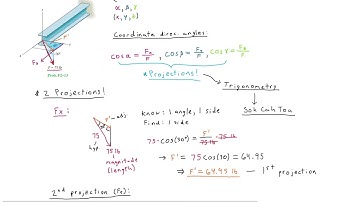 α, β, γ
(x, y, z)
Coordinate direc. angles:
cos α = Fx/F, cos β = Fy/F, cos γ = Fz/F
*Projections!
→ Trigonometry
Soh Cah Toa
* 2 Projections!
Fx:
F' - adj.
75
Hyp.
75 lb
magnitude
(length)
Know: 1 angle, 1 side
Find: 1 side
75·cos(30°) = F'/75 lb · 75 lb
→ F' = 75cos(30) = 64.95
→ F' = 64.95 lb — 1st projection
2nd projection (Fx):
Fx
F = 75 lb